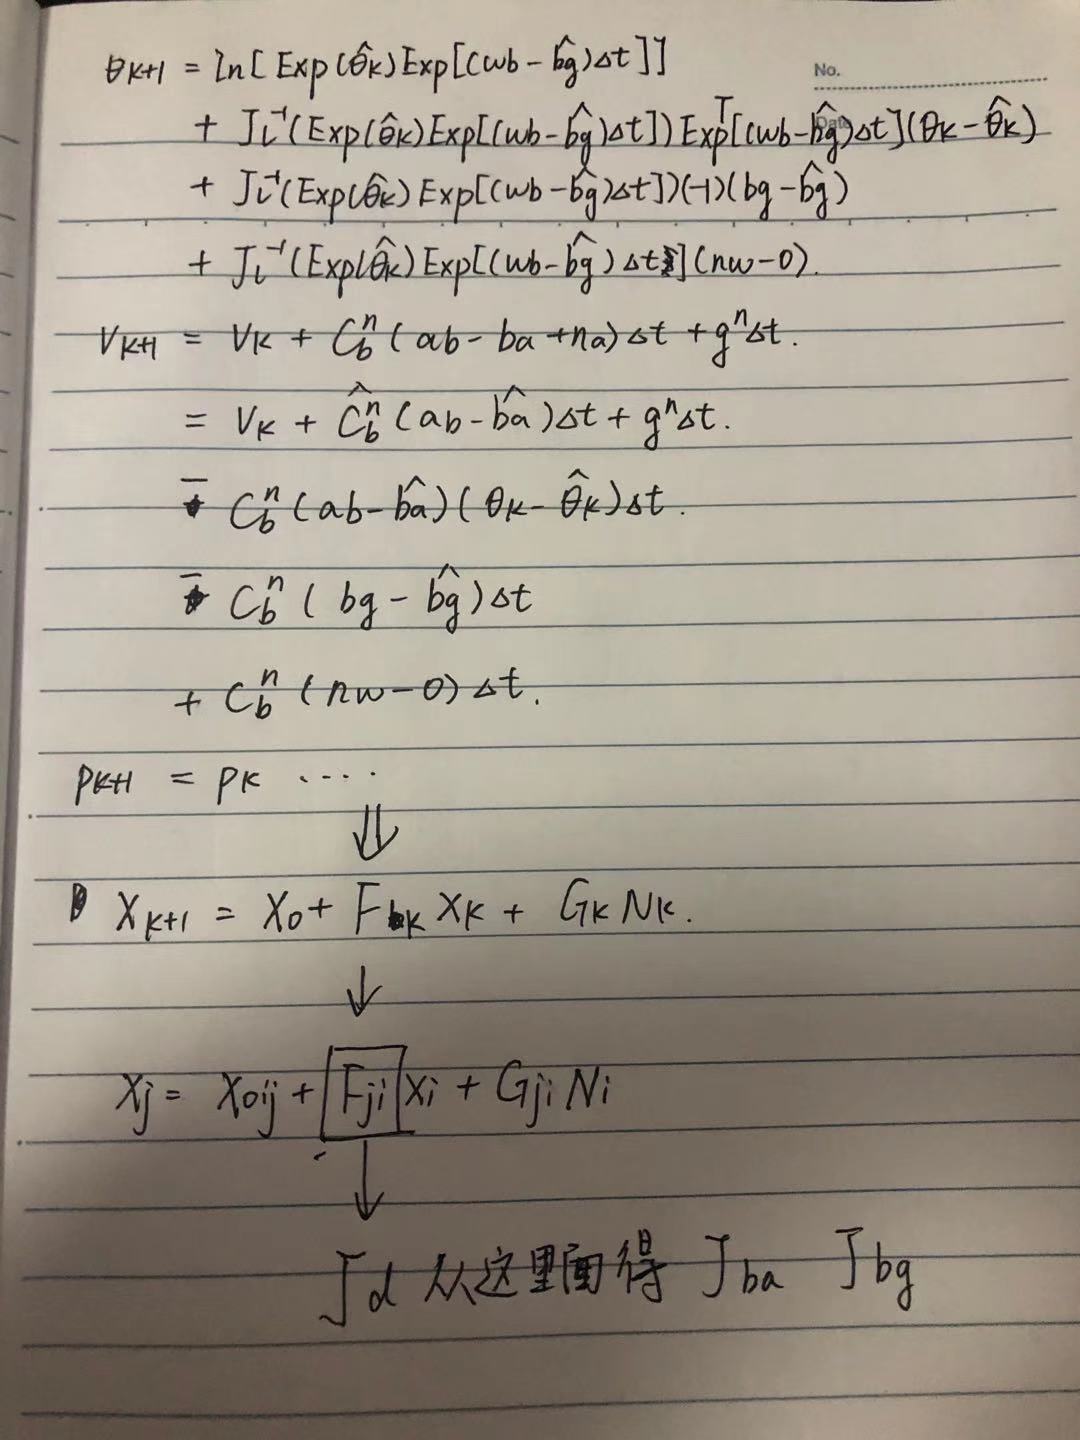 θk+1 = ln[Exp(θ̂k)Exp[(wb-b̂g)Δt]]
No.
+ Jl⁻¹(Exp(θ̂k)Exp[(wb-b̂g)Δt])Expᵀ[(wb-b̂g)Δt](θk-θ̂k)
+ Jl⁻¹(Exp(θ̂k)Exp[(wb-b̂g)Δt])(-1)(bg-b̂g)
+ Jl⁻¹(Exp(θ̂k)Exp[(wb-b̂g)Δt](nw-0).
Vk+1 = Vk + Cbⁿ(ab-ba+na)Δt + gⁿΔt.
= Vk + Ĉbⁿ(ab-b̂a)Δt + gⁿΔt.
- Cbⁿ(ab-b̂a)(θk-θ̂k)Δt.
- Cbⁿ(bg-b̂g)Δt
+ Cbⁿ(nw-0)Δt.
Pk+1 = Pk ····
⇓
Xk+1 = X0 + Fk Xk + Gk Nk.
↓
Xj = X0ij + Fji Xi + Gji Ni
↓
Jd 从这里面得 Jba Jbg